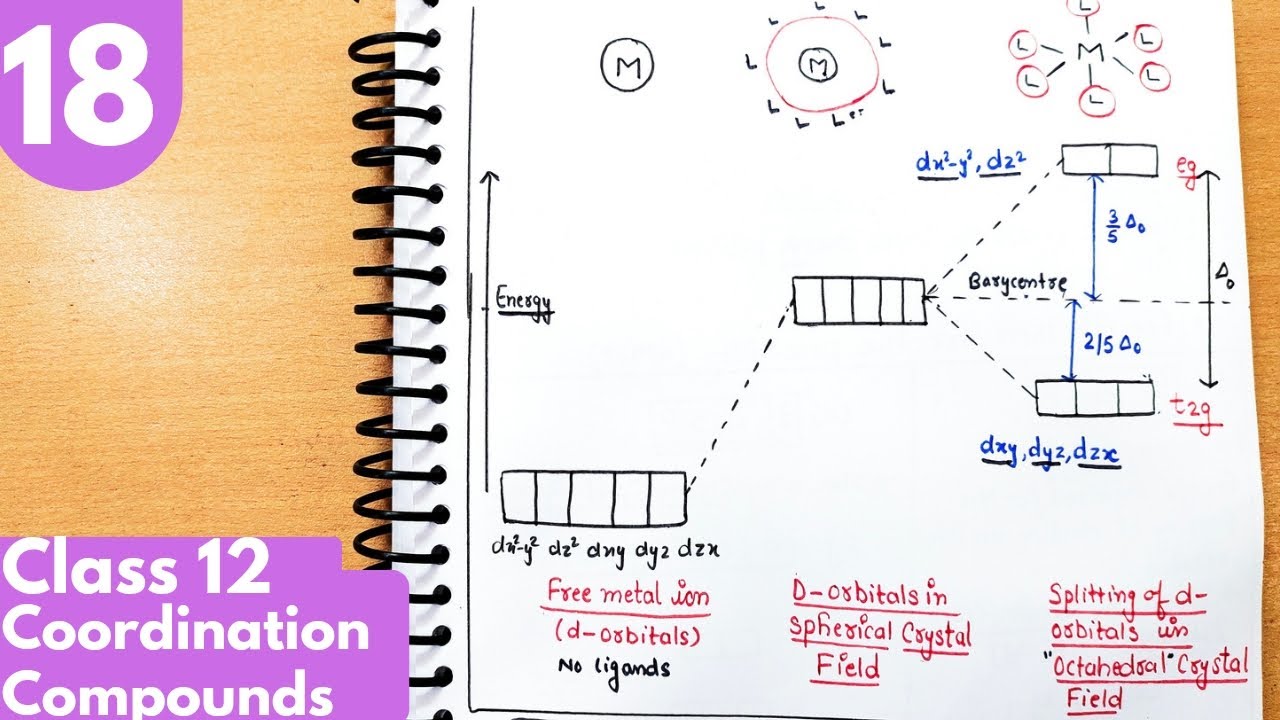 18
M
L
L
L
L
M
L
L
L
L
L
L
L
L
L
M
L
L
L
L
dx²-y², dz²
eg
3/5 Δ₀
Energy
Barycentre
Δ₀
2/5 Δ₀
t2g
dxy, dyz, dzx
dx²-y² dz² dxy dyz dzx
Free metal ion
(d-orbitals)
No ligands
D-orbitals in
spherical Crystal
Field
Splitting of d-
orbitals in
"Octahedral" Crystal
Field
Class 12
Coordination
Compounds